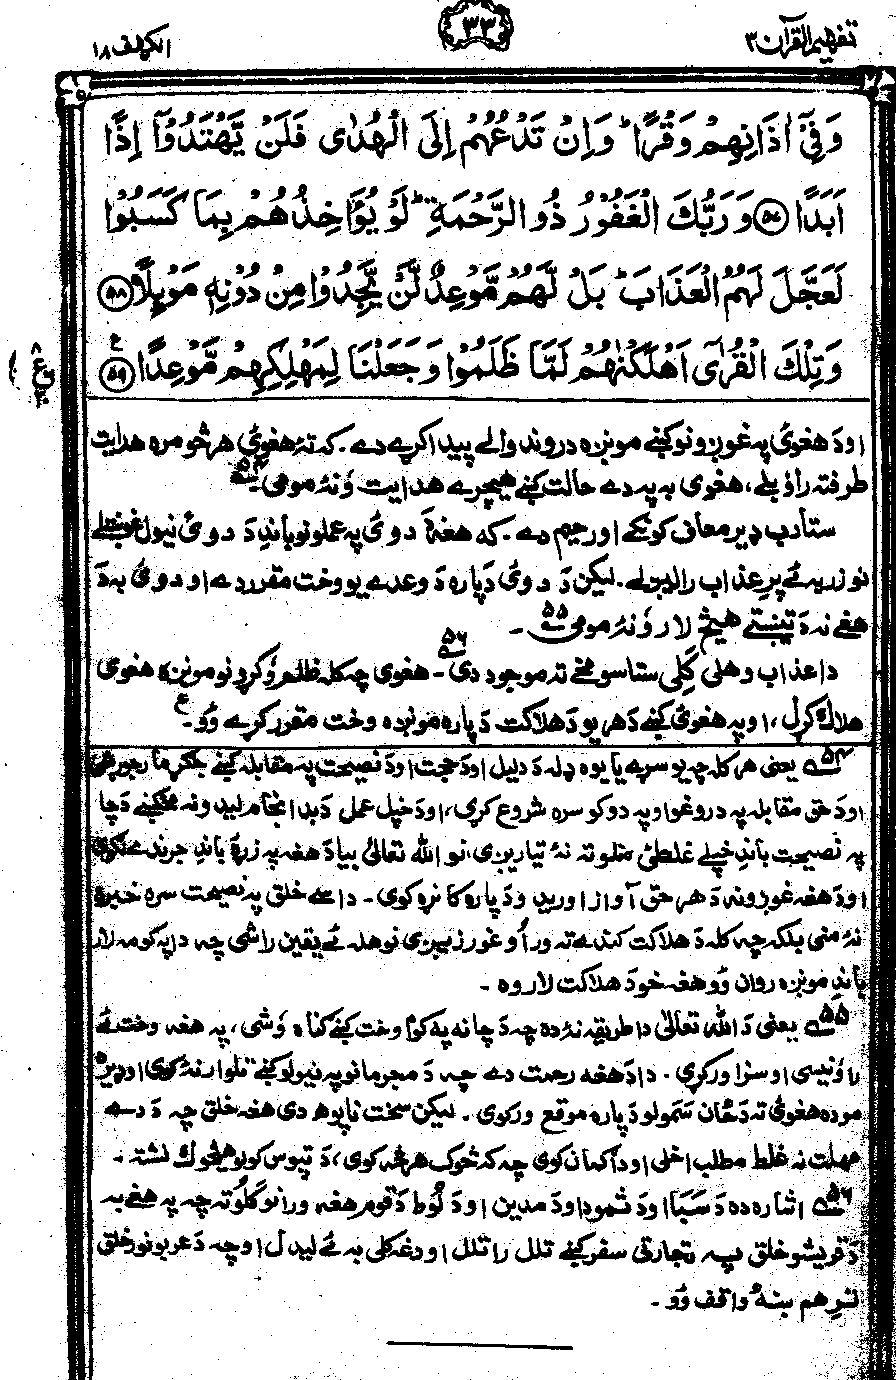 تفهيم القرآن ۳
۳۳
الکهف ۱۸
وَفِيْٓ اٰذَانِهِمْ وَقْرًا ؕ وَاِنْ تَدْعُهُمْ اِلَى الْهُدٰى فَلَنْ يَّهْتَدُوْٓا اِذًا
اَبَدًا ﴿۵۷﴾ وَرَبُّكَ الْغَفُوْرُ ذُو الرَّحْمَةِ ؕ لَوْ يُؤَاخِذُهُمْ بِمَا كَسَبُوْا
لَعَجَّلَ لَهُمُ الْعَذَابَ ؕ بَلْ لَّهُمْ مَّوْعِدٌ لَّنْ يَّجِدُوْا مِنْ دُوْنِهٖ مَوْىِٕلًا ﴿۵۸﴾
وَتِلْكَ الْقُرٰٓى اَهْلَكْنٰهُمْ لَمَّا ظَلَمُوْا وَجَعَلْنَا لِمَهْلِكِهِمْ مَّوْعِدًا ﴿۵۹﴾ ع
اودَ هغوئ په غوږونو کښے مونږه دروند والے پيدا کړے دے. که تهٔ هغوئ هر څومره هدايت
طرفته راؤبلے، هغوی به په دے حالت کښے هيچرے هدايت وُ نهٔ مومی۔ ۵۴
ستا رب ډير معاف کونکے او رحيم دے. که هغهٔ دَ دوئ په عملونو باندِ دَ دوئ نيول غوښتلے
نو زر به ئے پرِ عذاب راليږلے. ليکن دَ دوئ دَپاره دَ وعدے يو وخت مقرر دے او دوئ به دَ
هغے نه دَ تيښتے هيڅ لار وُ نهٔ مومی ۵۵ ۔
دا عذاب وهلی کلِی ستاسو مخے ته موجود دی ۵۶ ۔ هغوی چه کله ظلم وُکړو نو مونږه هغوی
هلاک کړل، او په هغوئ کښے دَ هر يو دَ هلاکت دَ پاره مونږه وخت مقرر کړے وُو۔ ع
۵۴ يعنی هر کله چه يو سړے يا يوه ډله دَ دليل او دَ حجت او دَ نصيحت په مقابله کښے جګړ مار
او دَ حق مقابله په دروغو او په دوکو سره شروع کړی، او دَ خپل عمل دَ بد انجام ليدونه مخکښے دَ چا
په نصيحت باندِ خپلے غلطئ منلو ته نهٔ تياريږی، نو الله تعالیٰ بيا دَ هغه په زړهٔ باندِ جرندے
او دَ هغه غوږونه دَ هر حق آواز اوريدو دَ پاره کانړه کوی۔ داسے خلق په نصيحت سره خبره
نهٔ منی بلکه چه کله دَ هلاکت کندے ته ورأوغورزيږی نو هله ئے يقين راشی چه دا په کومه لار
باندِ مونږه روان وُو هغه خو دَ هلاکت لار وه ۔
۵۵ يعنی دَ الله تعالیٰ دا طريقه نهٔ ده چه دَ چا نه په کوم وخت کښے ګناه وُشی، په هغه وخت ئے
راؤنيسی او سزا ورکړی۔ دا دَ هغه رحمت دے چه دَ مجرمانو په نيولو کښے تلوار نهٔ کوی او ډيره
موده هغوئ ته دَ ځان سَمَولو دَ پاره موقع ورکوی۔ ليکن سخت ناپوهه دی هغه خلق چه دَ دے
مهلت نه غلط مطلب اخلی او دا ګمان کوی چه که څوک هر څه کوی، دَ تپوس کولو هيڅوک نشته۔
۵۶ اشاره ده دَ سَبَا او دَ ثمود او دَ مدين او دَ لُوط دَ قوم هغه ورانو کلو ته چه په هغے به
دَ قريشو خلق په تجارتی سفر کښے تلل راتلل او دغه کلی به ئے ليدل او چه دَ عربو نور خلق
ترِ هم ښهٔ واقف وُو۔